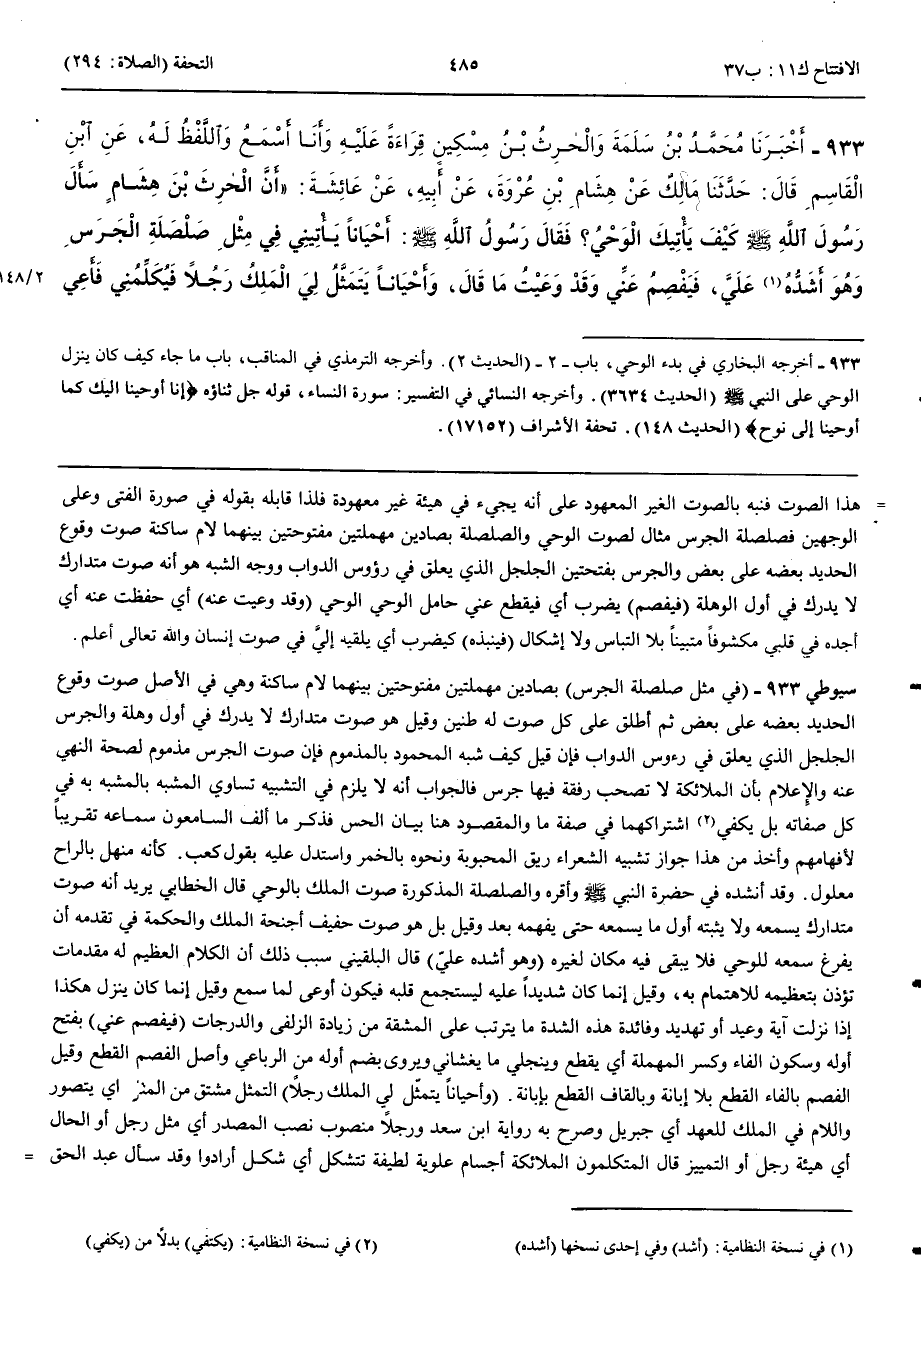 الافتتاح ك١١: ب٣٧
٤٨٥
التحفة (الصلاة: ٢٩٤)
٩٣٣ - أَخْبَرَنَا مُحَمَّدُ بْنُ سَلَمَةَ وَالْحٰرِثُ بْنُ مِسْكِينٍ قِرَاءَةً عَلَيْهِ وَأَنَا أَسْمَعُ وَاللَّفْظُ لَهُ، عَنِ ابْنِ
الْقَاسِمِ قَالَ: حَدَّثَنَا مَالِكٌ عَنْ هِشَامِ بْنِ عُرْوَةَ، عَنْ أَبِيهِ، عَنْ عَائِشَةَ: «أَنَّ الْحٰرِثَ بْنَ هِشَامٍ سَأَلَ
رَسُولَ اللَّهِ ﷺ كَيْفَ يَأْتِيكَ الْوَحْيُ؟ فَقَالَ رَسُولُ اللَّهِ ﷺ: أَحْيَاناً يَأْتِينِي فِي مِثْلِ صَلْصَلَةِ الْجَرَسِ
وَهُوَ أَشَدُّهُ(١) عَلَيَّ، فَيَفْصِمُ عَنِّي وَقَدْ وَعَيْتُ مَا قَالَ، وَأَحْيَانـاً يَتَمَثَّلُ لِيَ الْمَلِكُ رَجُلاً فَيُكَلِّمُنِي فَأَعِي
١٤٨/٢
٩٣٣ - أخرجه البخاري في بدء الوحي، باب - ٢ - (الحديث ٢). وأخرجه الترمذي في المناقب، باب ما جاء كيف كان ينزل
الوحي على النبي ﷺ (الحديث ٣٦٣٤). وأخرجه النسائي في التفسير: سورة النساء، قوله جل ثناؤه ﴿إنا أوحينا اليك كما
أوحينا إلى نوح﴾ (الحديث ١٤٨). تحفة الأشراف (١٧١٥٢).
= هذا الصوت فنبه بالصوت الغير المعهود على أنه يجيء في هيئة غير معهودة فلذا قابله بقوله في صورة الفتى وعلى
الوجهين فصلصلة الجرس مثال لصوت الوحي والصلصلة بصادين مهملتين مفتوحتين بينهما لام ساكنة صوت وقوع
الحديد بعضه على بعض والجرس بفتحتين الجلجل الذي يعلق في رؤوس الدواب ووجه الشبه هو أنه صوت متدارك
لا يدرك في أول الوهلة (فيفصم) يضرب أي فيقطع عني حامل الوحي الوحي (وقد وعيت عنه) أي حفظت عنه أي
أجده في قلبي مكشوفاً متبيناً بلا التباس ولا إشكال (فينبذه) كيضرب أي يلقيه إليَّ في صوت إنسان والله تعالى أعلم.
سيوطي ٩٣٣ - (في مثل صلصلة الجرس) بصادين مهملتين مفتوحتين بينهما لام ساكنة وهي في الأصل صوت وقوع
الحديد بعضه على بعض ثم أطلق على كل صوت له طنين وقيل هو صوت متدارك لا يدرك في أول وهلة والجرس
الجلجل الذي يعلق في رءوس الدواب فإن قيل كيف شبه المحمود بالمذموم فإن صوت الجرس مذموم لصحة النهي
عنه والإعلام بأن الملائكة لا تصحب رفقة فيها جرس فالجواب أنه لا يلزم في التشبيه تساوي المشبه بالمشبه به في
كل صفاته بل يكفي(٢) اشتراكهما في صفة ما والمقصود هنا بيان الحس فذكر ما ألف السامعون سماعه تقريباً
لأفهامهم وأخذ من هذا جواز تشبيه الشعراء ريق المحبوبة ونحوه بالخمر واستدل عليه بقول كعب. كأنه منهل بالراح
معلول. وقد أنشده في حضرة النبي ﷺ وأقره والصلصلة المذكورة صوت الملك بالوحي قال الخطابي يريد أنه صوت
متدارك يسمعه ولا يثبته أول ما يسمعه حتى يفهمه بعد وقيل بل هو صوت حفيف أجنحة الملك والحكمة في تقدمه أن
يفرغ سمعه للوحي فلا يبقى فيه مكان لغيره (وهو أشده عليّ) قال البلقيني سبب ذلك أن الكلام العظيم له مقدمات
تؤذن بتعظيمه للاهتمام به، وقيل إنما كان شديداً عليه ليستجمع قلبه فيكون أوعى لما سمع وقيل إنما كان ينزل هكذا
إذا نزلت آية وعيد أو تهديد وفائدة هذه الشدة ما يترتب على المشقة من زيادة الزلفى والدرجات (فيفصم عني) بفتح
أوله وسكون الفاء وكسر المهملة أي يقطع وينجلي ما يغشاني ويروى بضم أوله من الرباعي وأصل الفصم القطع وقيل
الفصم بالفاء القطع بلا إبانة وبالقاف القطع بإبانة. (وأحياناً يتمثّل لي الملك رجلاً) التمثل مشتق من أي يتصور
واللام في الملك للعهد أي جبريل وصرح به رواية ابن سعد ورجلاً منصوب نصب المصدر أي مثل رجل أو الحال
أي هيئة رجل أو التمييز قال المتكلمون الملائكة أجسام علوية لطيفة تتشكل أي شكل أرادوا وقد سأل عبد الحق =
(١) في نسخة النظامية: (أشد) وفي إحدى نسخها (أشده)
(٢) في نسخة النظامية: (يكتفي) بدلاً من (يكفي)